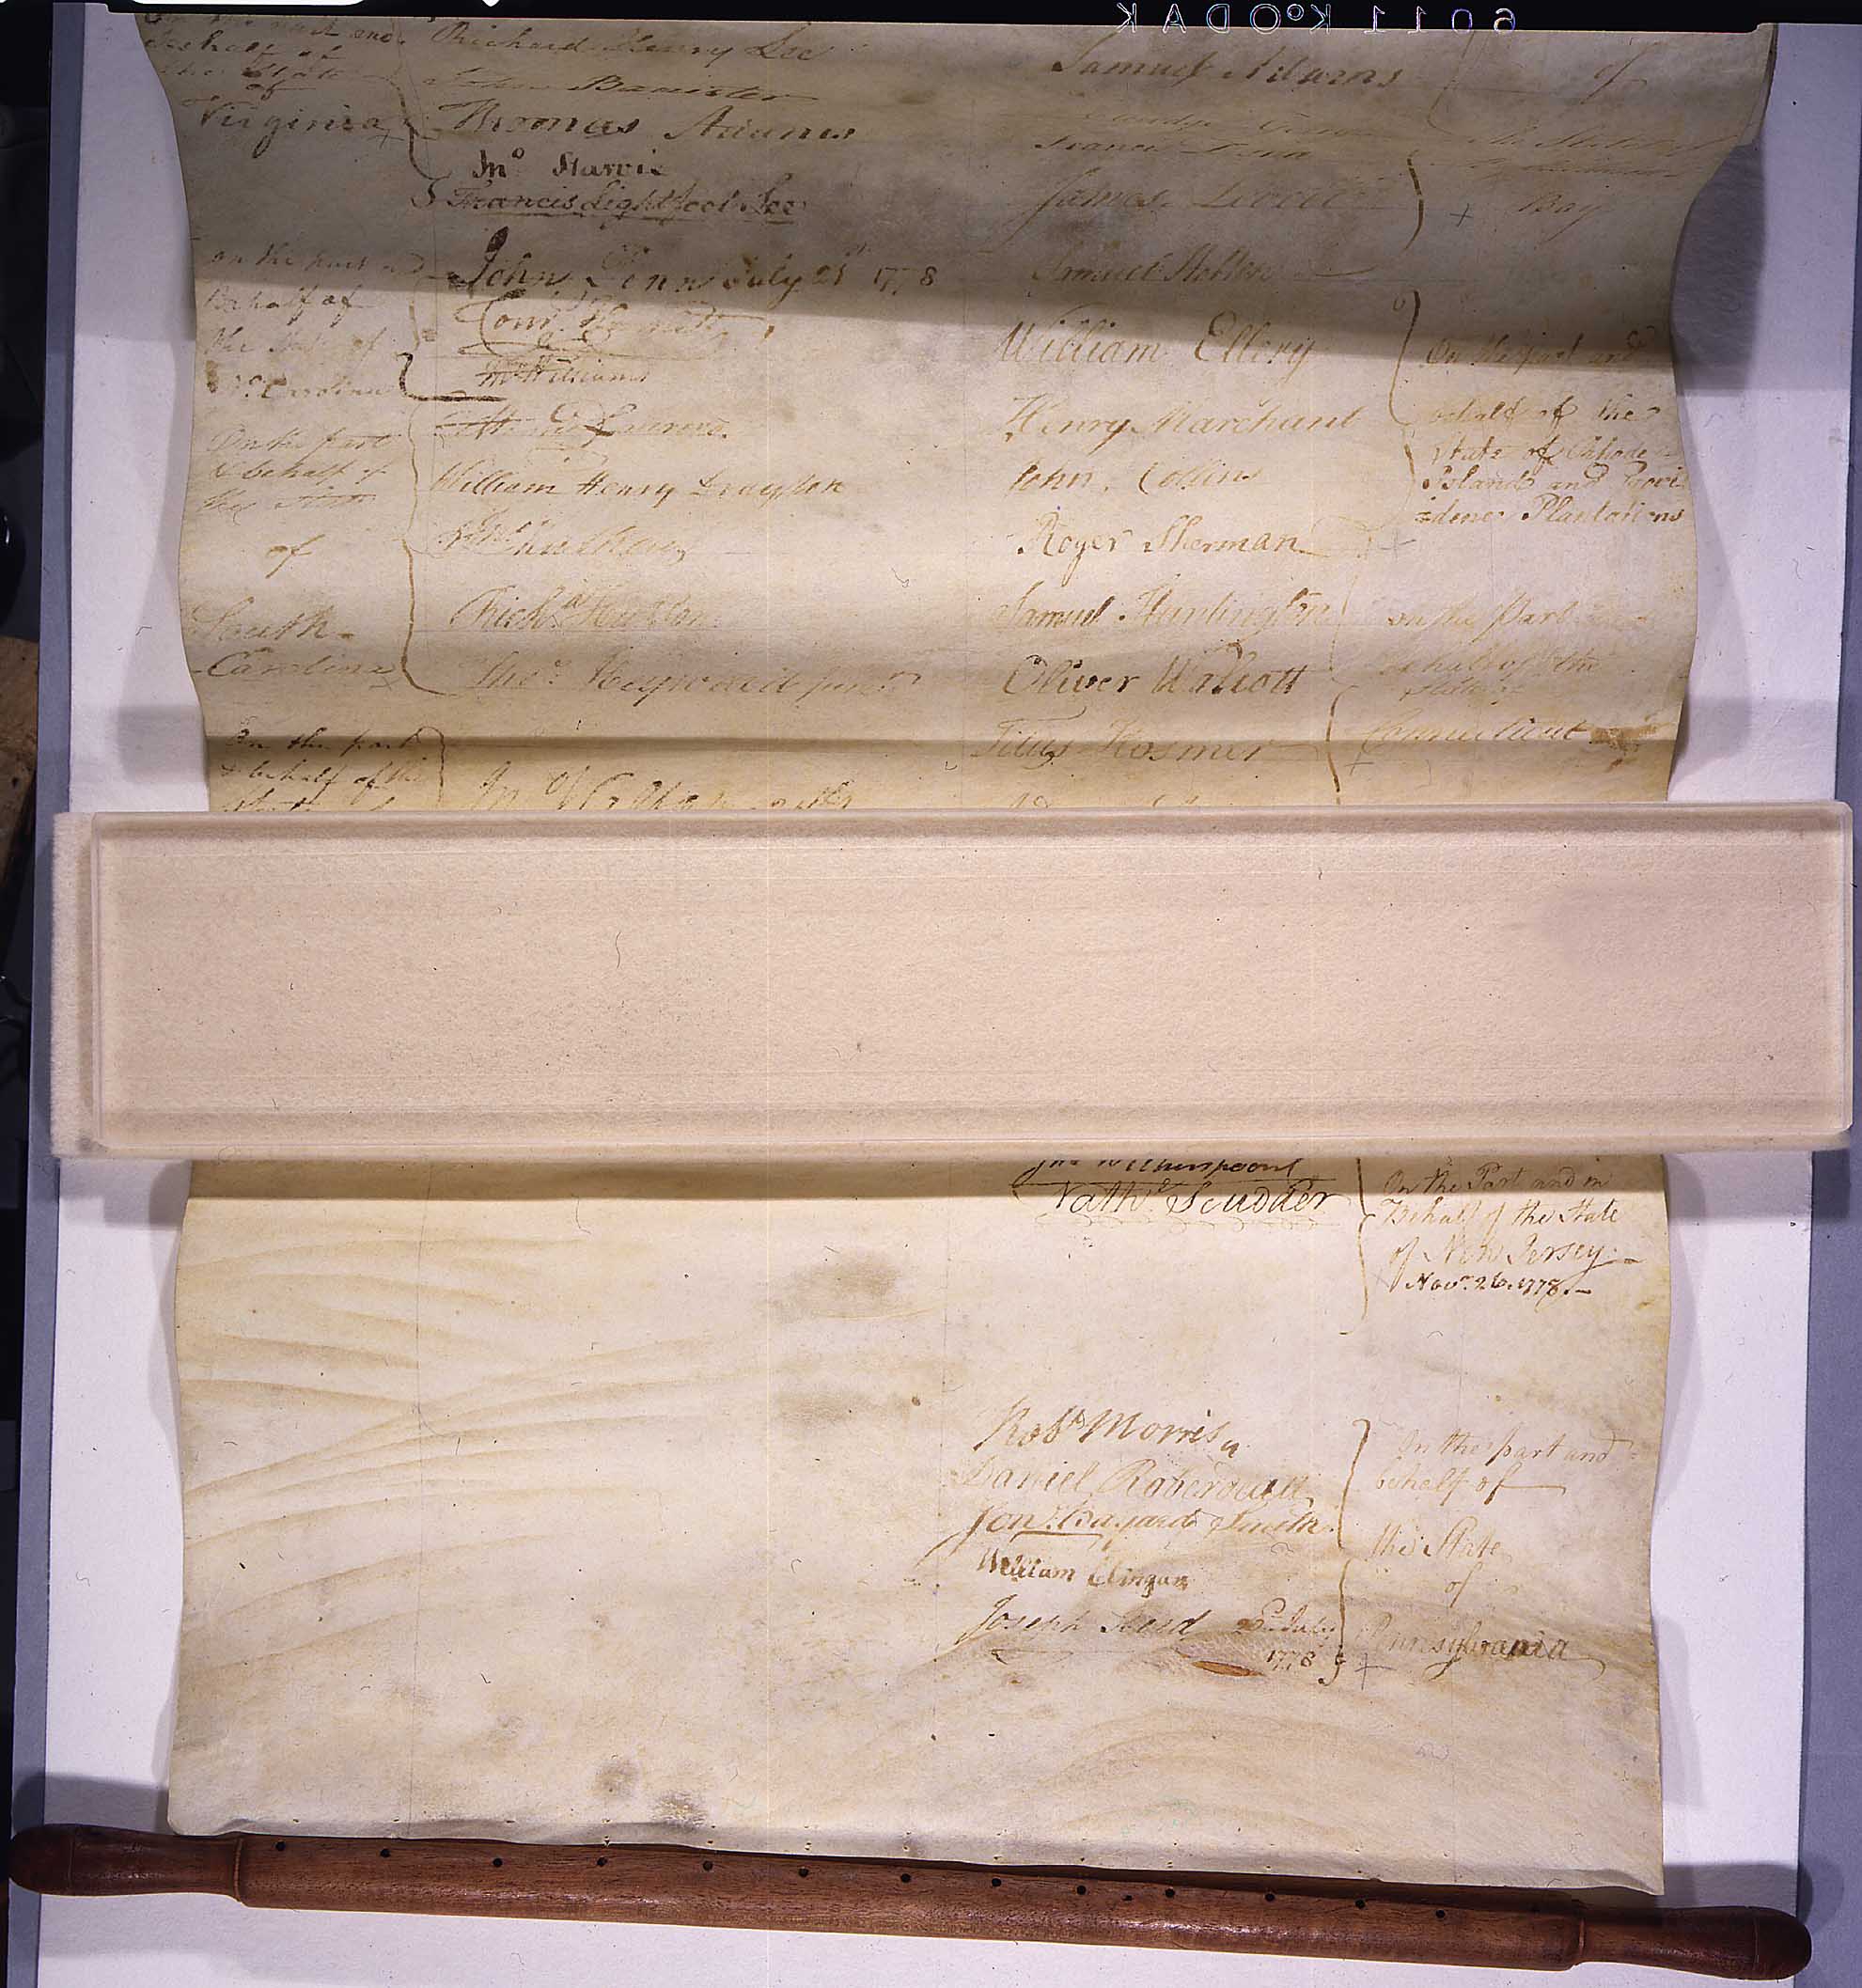 Behalf of
the State
of
Virginia
Richard Henry Lee
John Banister
Thomas Adams
Jnº Harvie
Francis Lightfoot Lee
on the part and
Behalf of
the State of
Nº Carolina
John Penn July 21st 1778
Corns Harnett
Jnº Williams
On the part
& behalf of
the State
of
South-
Carolina
Henry Laurens
William Henry Drayton
Jnº Mathews
Richd Hutson
Thos. Heyward junr
On the part
& behalf of the
Jnº Walton
Samuel Adams
Francis Dana
James Lovell
Samuel Holten
of
Bay
William Ellery
Henry Marchant
John Collins
On the part and
behalf of the
State of Rhode-
Island and Provi
=dence Plantations
Roger Sherman
Samuel Huntington
Oliver Wolcott
Titus Hosmer
on the Part and
behalf of the
State of
Connecticut
Jnº Witherspoon
Nathl. Scudder
On the Part and in
Behalf of the State
of New Jersey.-
Novr. 26. 1778.-
Robt Morris
Daniel Roberdeau
Jona. Bayard Smith.
William Clingan
Joseph Reed 22d July
1778
On the part and
behalf of
the State
of
Pennsylvania
6011 KODAK